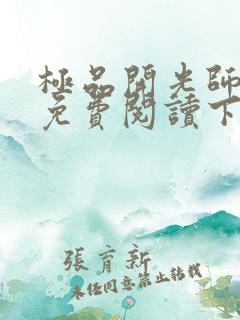 極品開光師
免費閱讀下
張育新
未經同意禁止轉載